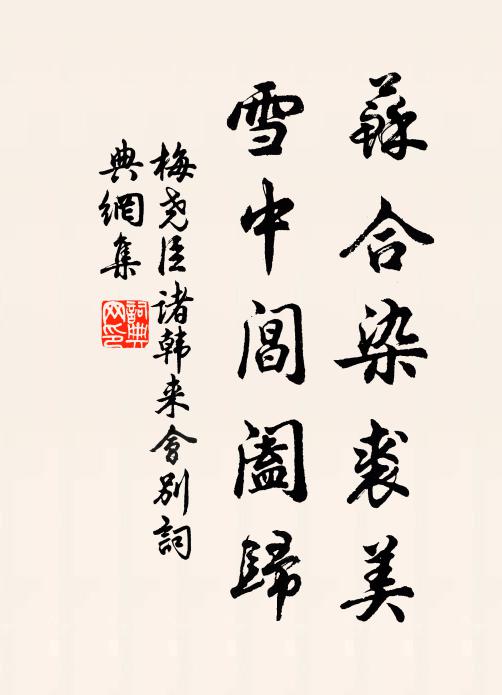 蘇合染裘美
雪中閶闔歸
梅尧臣诸韩来會别詞
典網集
詞典
网印